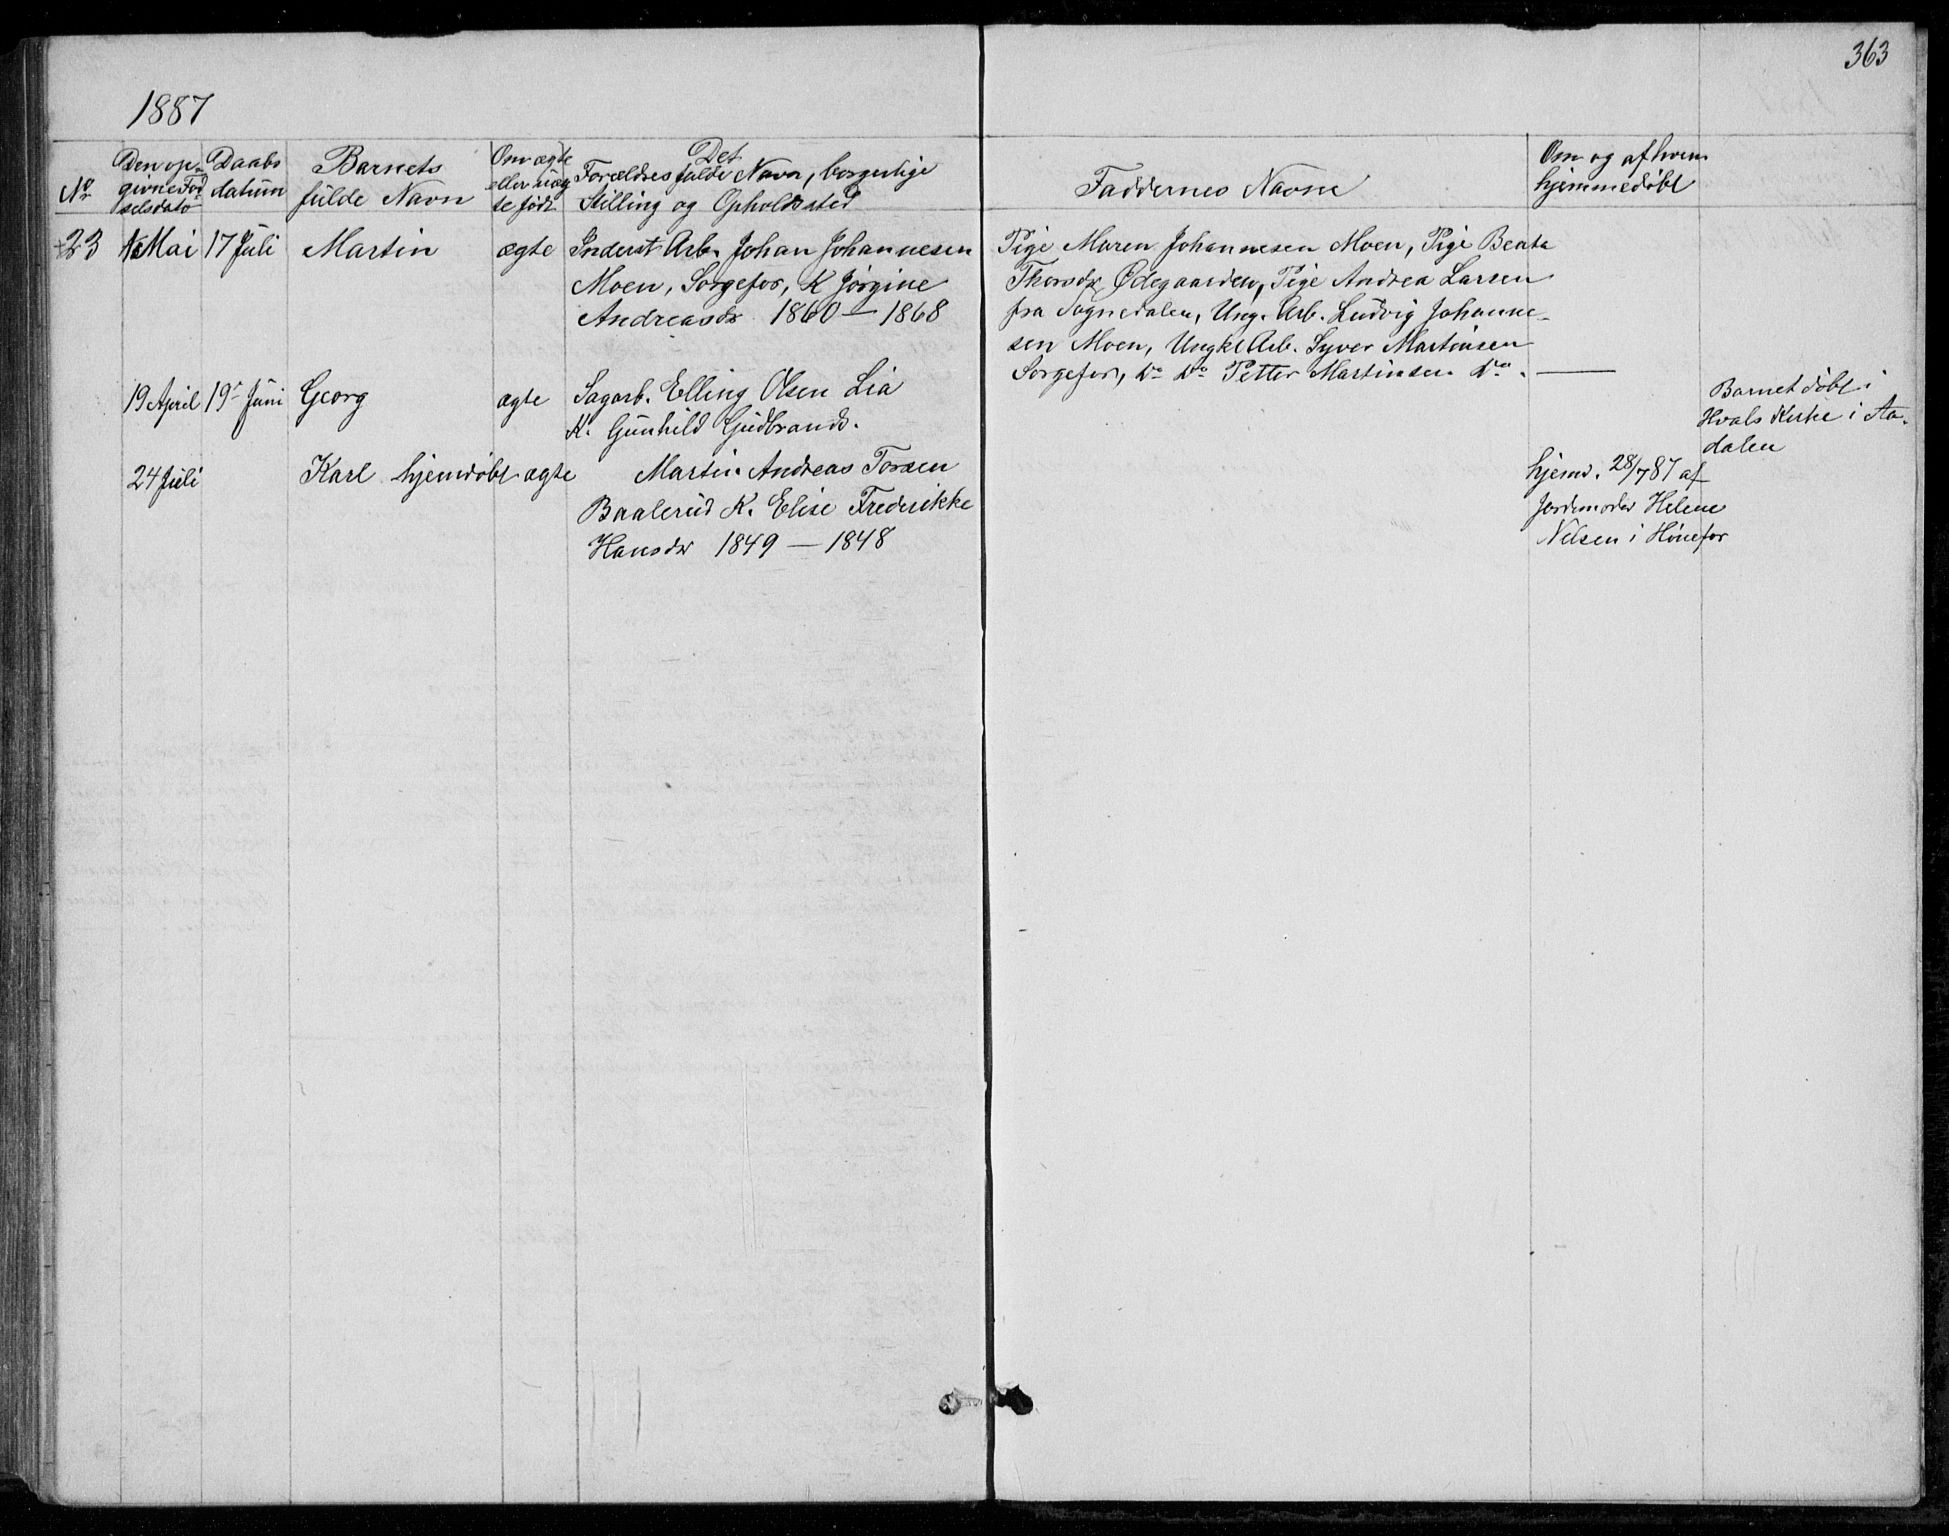 363
1887
No
Den op-
givne Fød
selsdato
Daabs
datum
Barnets
fulde Navn
Om ægte
eller uæg
te født
Det
Forældres fulde Navn, borgerlige
Stilling og Opholdssted
Faddernes Navne
Om og af hvem
hjemmedøbt
23 Mai 17 Juli Martin ægte Inderst Arb. Johan Johannesen
Moen, Sorgefos, K Jörgine
Andreasdr 1860 - 1868
Pige Maren Johannesen Moen, Pige Beate
Thorsdr Ødegaarden, Pige Andrea Larsen
fra Sognedalen, Ung. Arb. Ludvig Johanne-
sen Moen, Ungkl Arb. Syver Martinsen
Sorgefos, do do Petter Martinsen do. —
19 April 19 Juni Georg ægte Sagarb. Elling Olsen Lia
K. Gunhild Gudbrands.
Barnet døbt i
Hvals Kirke i Aa-
dalen
24 Juli Karl hjemdøbt ægte Martin Andreas Torsen
Baalerud K. Elise Frederikke
Hansdr 1849 — 1848
hjemd. 28/7 87 af
Jordemoder Helene
Nilsen i Hönefos